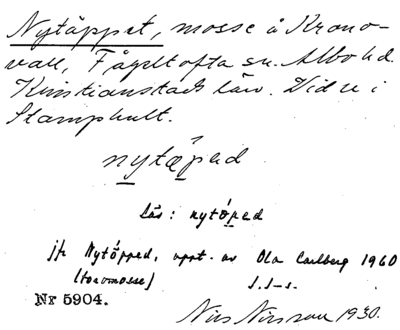 Nytäppet, mosse å Krono-
vall, Fågeltofta sn. Albo hd.
Kristianstads län. Vid u i
Stamphult.
nytæpəd
läs: nytǫ́pəd
jfr Nytöpped, uppt. av Ola Carlberg 1960
(torvmosse) S.J-s.
Nr 5904.
Nils Nilsson 1930.